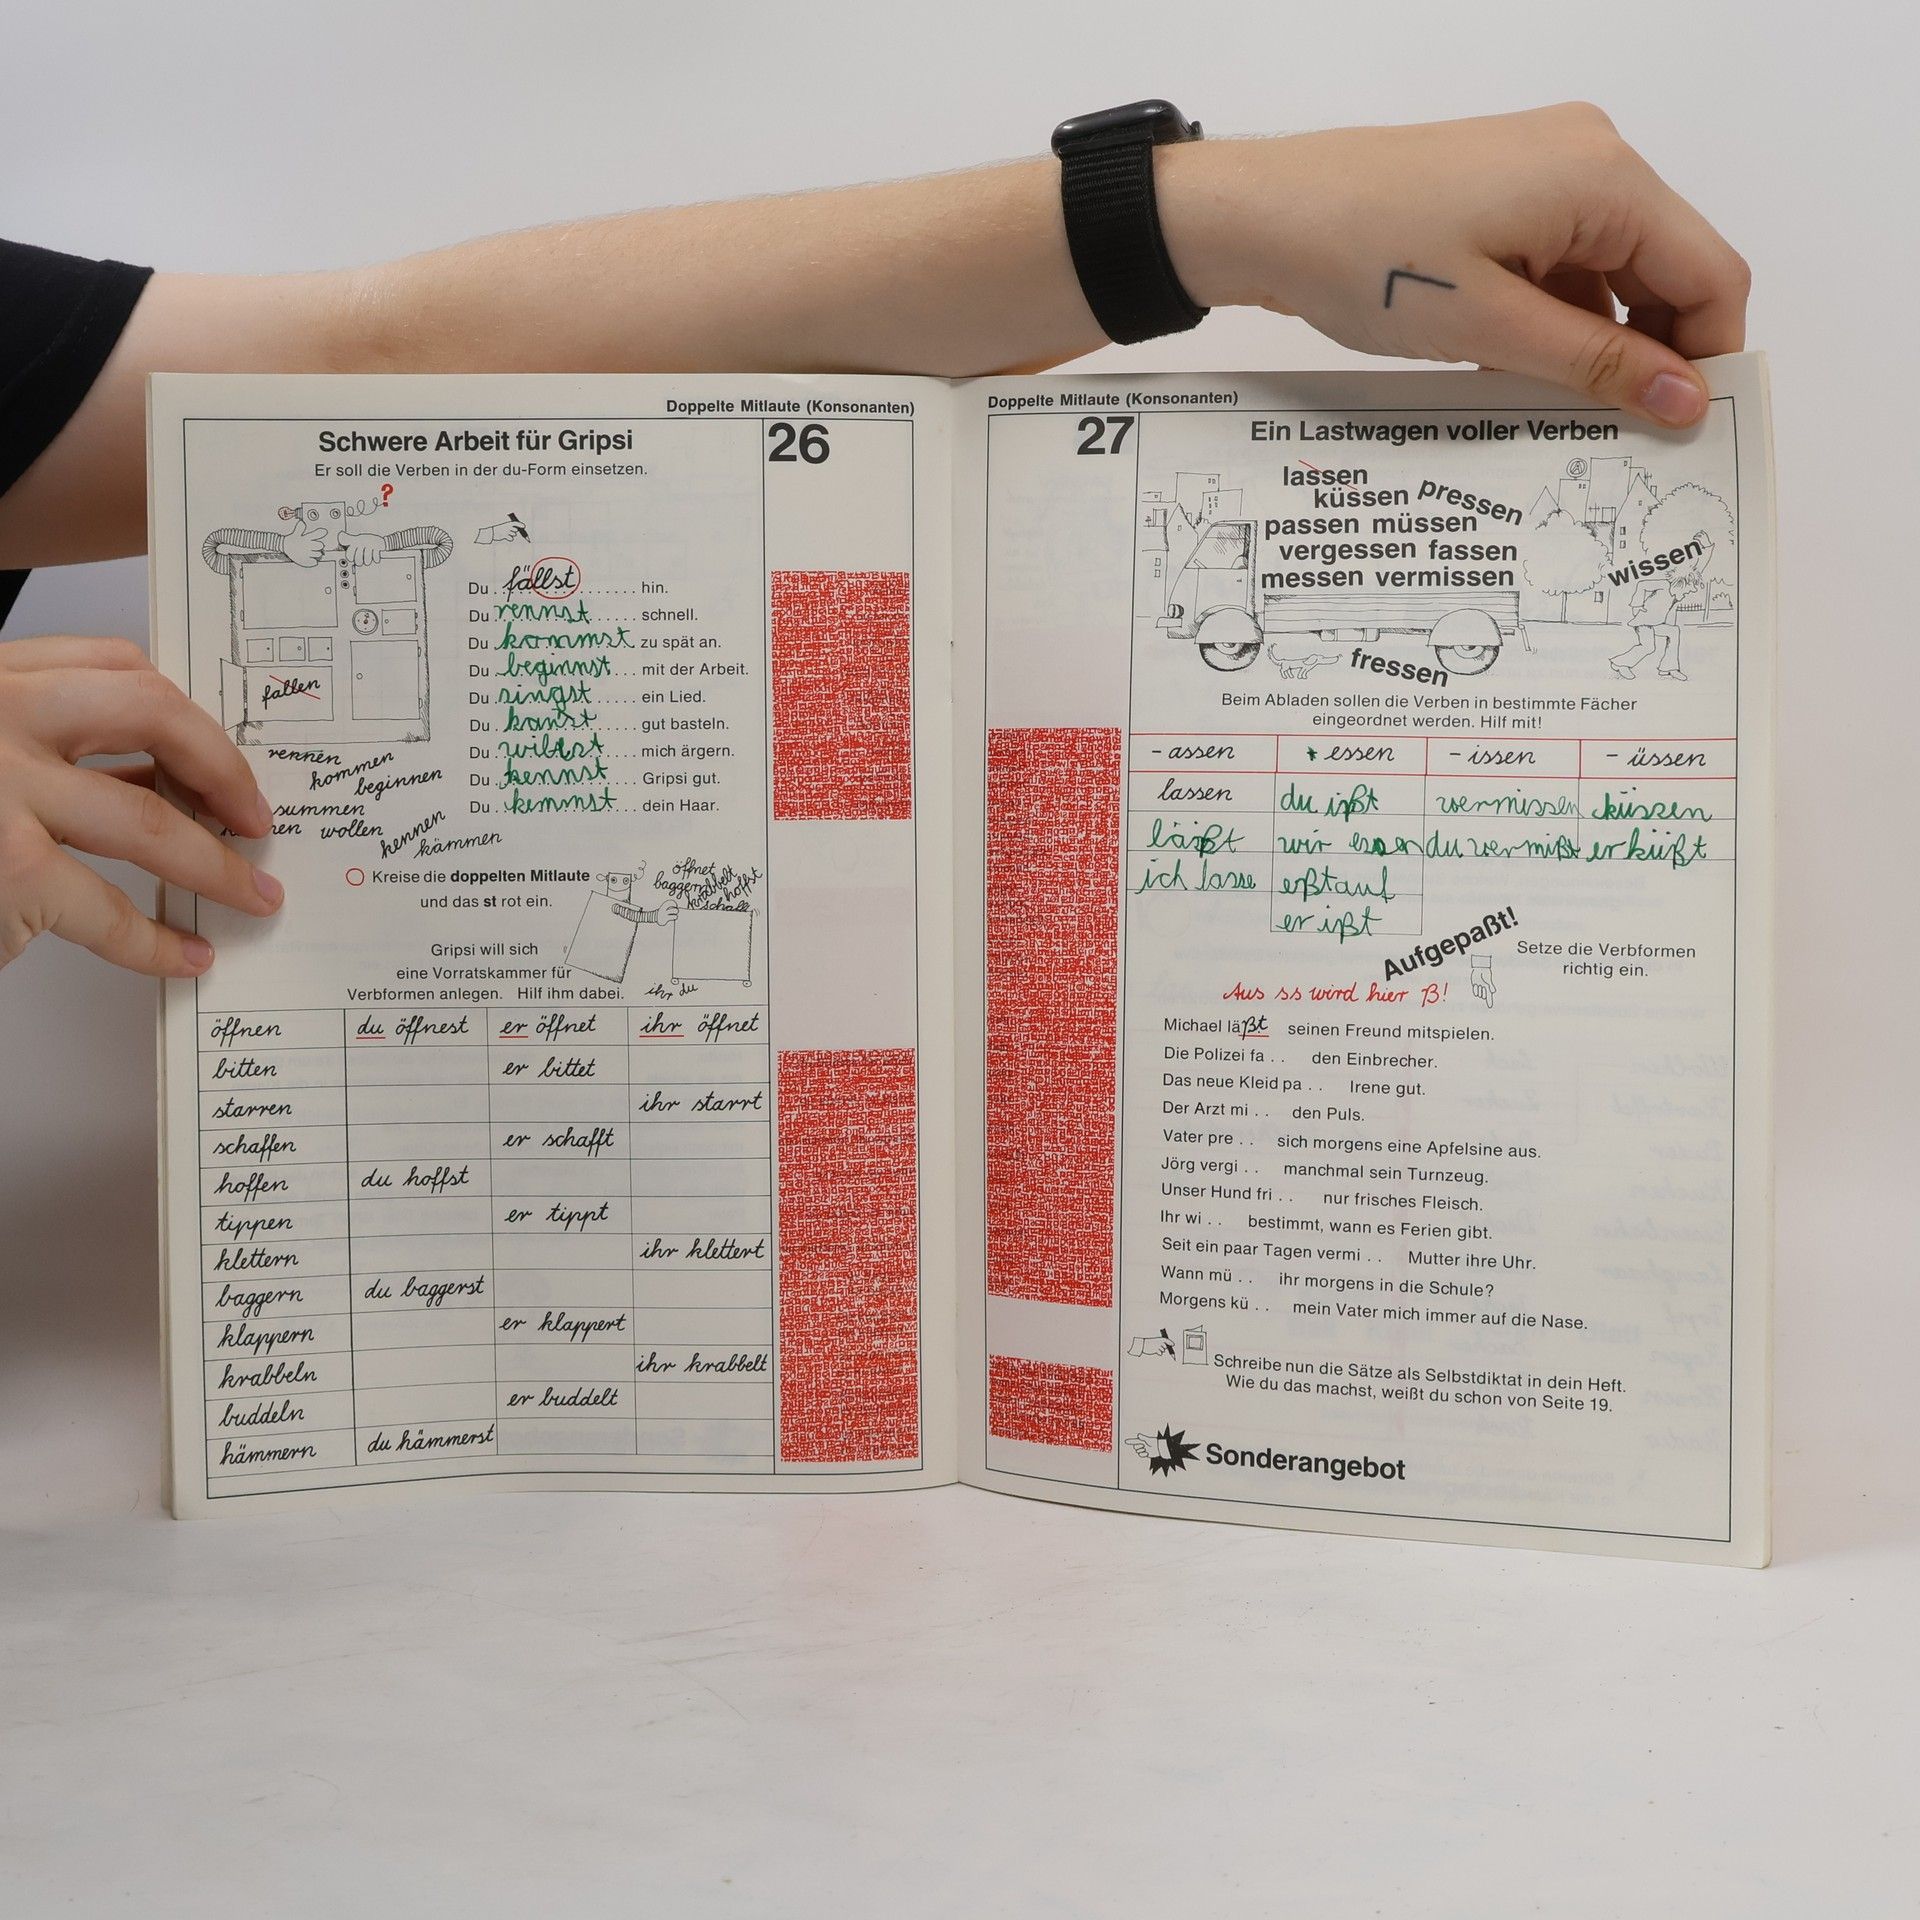 Doppelte Mitlaute (Konsonanten)
26
Schwere Arbeit für Gripsi
Er soll die Verben in der du-Form einsetzen.
?
fallen
rennen
kommen
beginnen
summen
wollen
kennen
kämmen
Du fällst hin.
Du rennst schnell.
Du kommst zu spät an.
Du beginnst mit der Arbeit.
Du singst ein Lied.
Du kanst gut basteln.
Du willst mich ärgern.
Du kennst Gripsi gut.
Du kemmst dein Haar.
Kreise die doppelten Mitlaute
und das st rot ein.
öffnet
baggern
krabbelt
hofft
schallt
Gripsi will sich
eine Vorratskammer für
Verbformen anlegen. Hilf ihm dabei.
ihr du
öffnen du öffnest er öffnet ihr öffnet
bitten er bittet
starren ihr starrt
schaffen er schafft
hoffen du hoffst
tippen er tippt
klettern ihr klettert
baggern du baggerst
klappern er klappert
krabbeln ihr krabbelt
buddeln er buddelt
hämmern du hämmerst
Doppelte Mitlaute (Konsonanten)
27
Ein Lastwagen voller Verben
lassen
küssen pressen
passen müssen
vergessen fassen
messen vermissen
wissen
fressen
Beim Abladen sollen die Verben in bestimmte Fächer
eingeordnet werden. Hilf mit!
- assen - essen - issen - üssen
lassen du ißt vermissen küssen
läßt wir essen du vermißt er küßt
ich lasse eßt auf
er ißt
Aufgepaßt!
Setze die Verbformen
richtig ein.
Aus ss wird hier ß!
Michael läßt seinen Freund mitspielen.
Die Polizei fa . . den Einbrecher.
Das neue Kleid pa . . Irene gut.
Der Arzt mi . . den Puls.
Vater pre . . sich morgens eine Apfelsine aus.
Jörg vergi . . manchmal sein Turnzeug.
Unser Hund fri . . nur frisches Fleisch.
Ihr wi . . bestimmt, wann es Ferien gibt.
Seit ein paar Tagen vermi . . Mutter ihre Uhr.
Wann mü . . ihr morgens in die Schule?
Morgens kü . . mein Vater mich immer auf die Nase.
Schreibe nun die Sätze als Selbstdiktat in dein Heft.
Wie du das machst, weißt du schon von Seite 19.
Sonderangebot